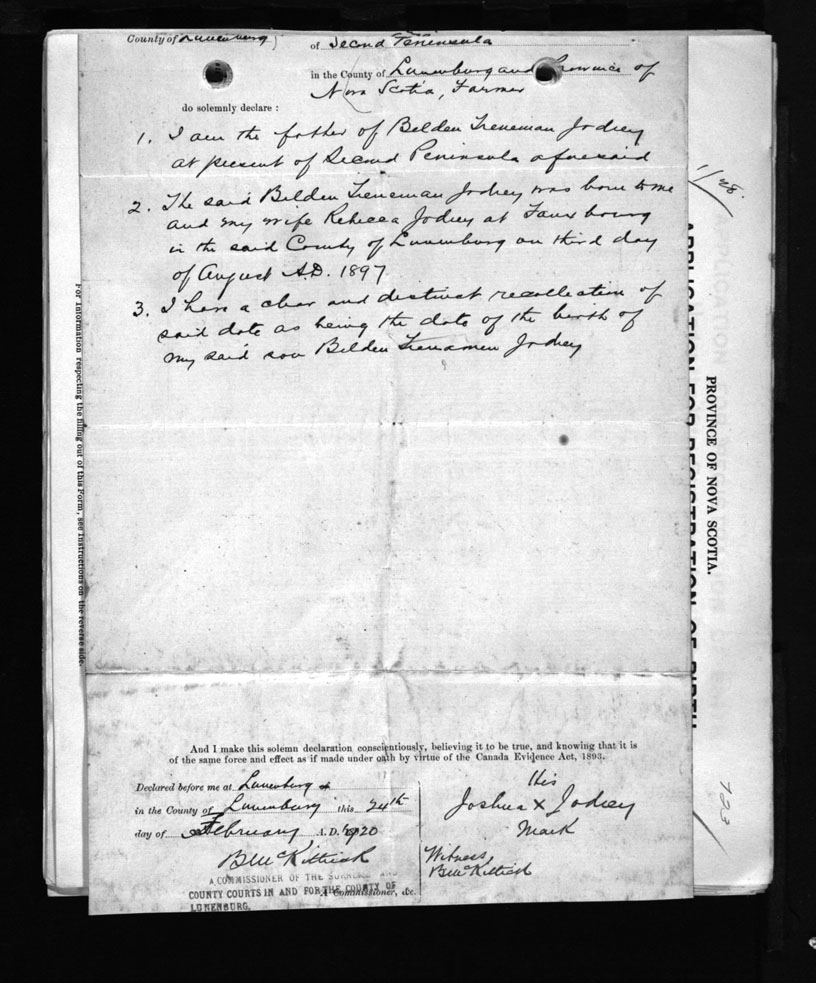 County of Lunenburg
of Second Peninsula
in the County of Lunenburg and Province of
Nova Scotia, Farmer
do solemnly declare :
1. I am the father of Belden Treneman Jodrey
at present of Second Peninsula aforesaid
2. The said Belden Treneman Jodrey was born to me
and my wife Rebecca Jodrey at Faux bourg
in the said County of Lunenburg on third day
of August A.D. 1897
3. I have a clear and distinct recollection of
said date as being the date of the birth of
my said son Belden Trenamen Jodrey
And I make this solemn declaration conscientiously, believing it to be true, and knowing that it is
of the same force and effect as if made under oath by virtue of the Canada Evidence Act, 1893.
Declared before me at Lunenburg
in the County of Lunenburg this 24th
day of February A.D. 1920
B McKittrick
A COMMISSIONER OF THE AND
COUNTY COURTS IN AND FOR THE COUNTY OF
LUNENBURG.
A Commissioner, &c.
His
Joshua X Jodrey
Mark
Witness
B McKittrick
For Information respecting the filling out of this Form, see instructions on the reverse side.
APPLICATION FOR REGISTRATION OF BIRTH
PROVINCE OF NOVA SCOTIA.
APPLICATION
723